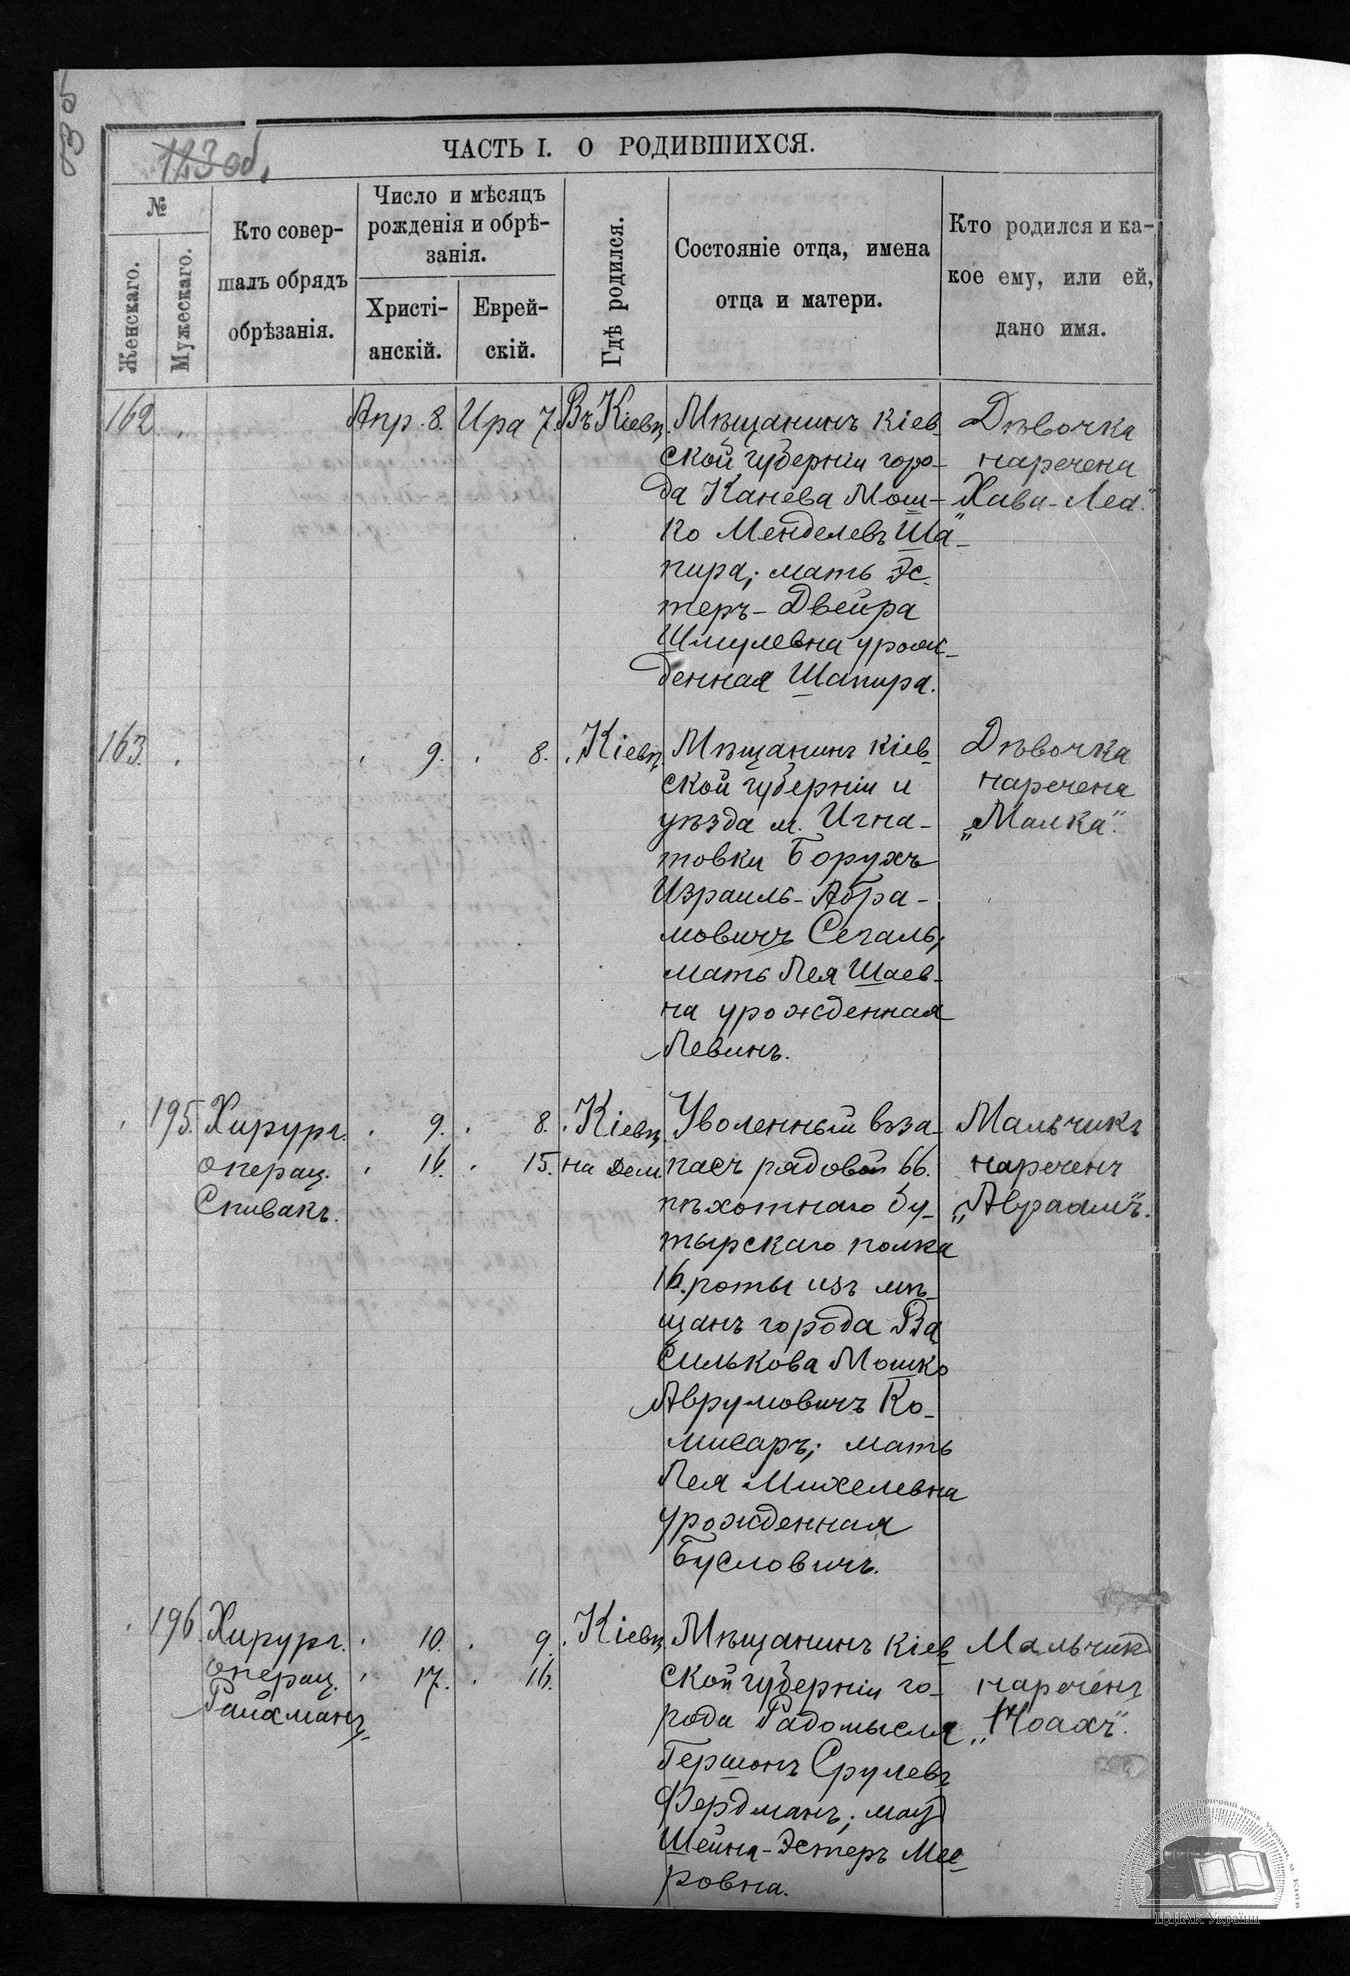 123 об.
ЧАСТЬ I. О РОДИВШИХСЯ.
№
Женскаго.
Мужескаго.
Кто совер-
шалъ обрядъ
обрѣзанія.
Число и мѣсяцъ
рожденія и обрѣ-
занія.
Христі-
анскій.
Еврей-
скій.
Гдѣ родился.
Состояніе отца, имена
отца и матери.
Кто родился и ка-
кое ему, или ей,
дано имя.
162. Апр. 8. Ира 7. Въ Кіевѣ.
Мѣщанинъ Кіев-
ской губерніи горо-
да Канева Мош-
ко Менделевъ Ша-
пира; мать Эс-
теръ-Двейра
Шмулевна урож-
денная Шапира.
Дѣвочка
наречена
„Хава-Леа".
163. 9. 8. Кіевѣ.
Мѣщанинъ Кіев-
ской губерніи и
уѣзда м. Игна-
товки Борухъ
Израиль-Абра-
мовичъ Сегаль;
мать Лея Шаев-
на урожденная
Левинъ.
Дѣвочка
наречена
„Малка".
195. Хирург.
операц.
Спивакъ.
9. 8. Кіевѣ
16. 15. на Дем.
Уволенный въ за-
пасъ рядовой 66.
пѣхотнаго Бу-
тырскаго полка
16. роты изъ мѣ-
щанъ города Ва-
силькова Мошко
Аврумовичъ Ко-
мисаръ; мать
Лея Михелевна
урожденная
Бусловичъ.
Мальчикъ
нареченъ
„Авраамъ".
196. Хирург.
операц.
Райхманъ.
10. 9. Кіевѣ
17. 16.
Мѣщанинъ Кіев-
ской губерніи го-
рода Радомысля
Гершонъ Срулевъ
Фердманъ; мать
Шейна-Эстеръ Мее-
ровна.
Мальчикъ
нареченъ
„Ноахъ".
ЦДІАК України